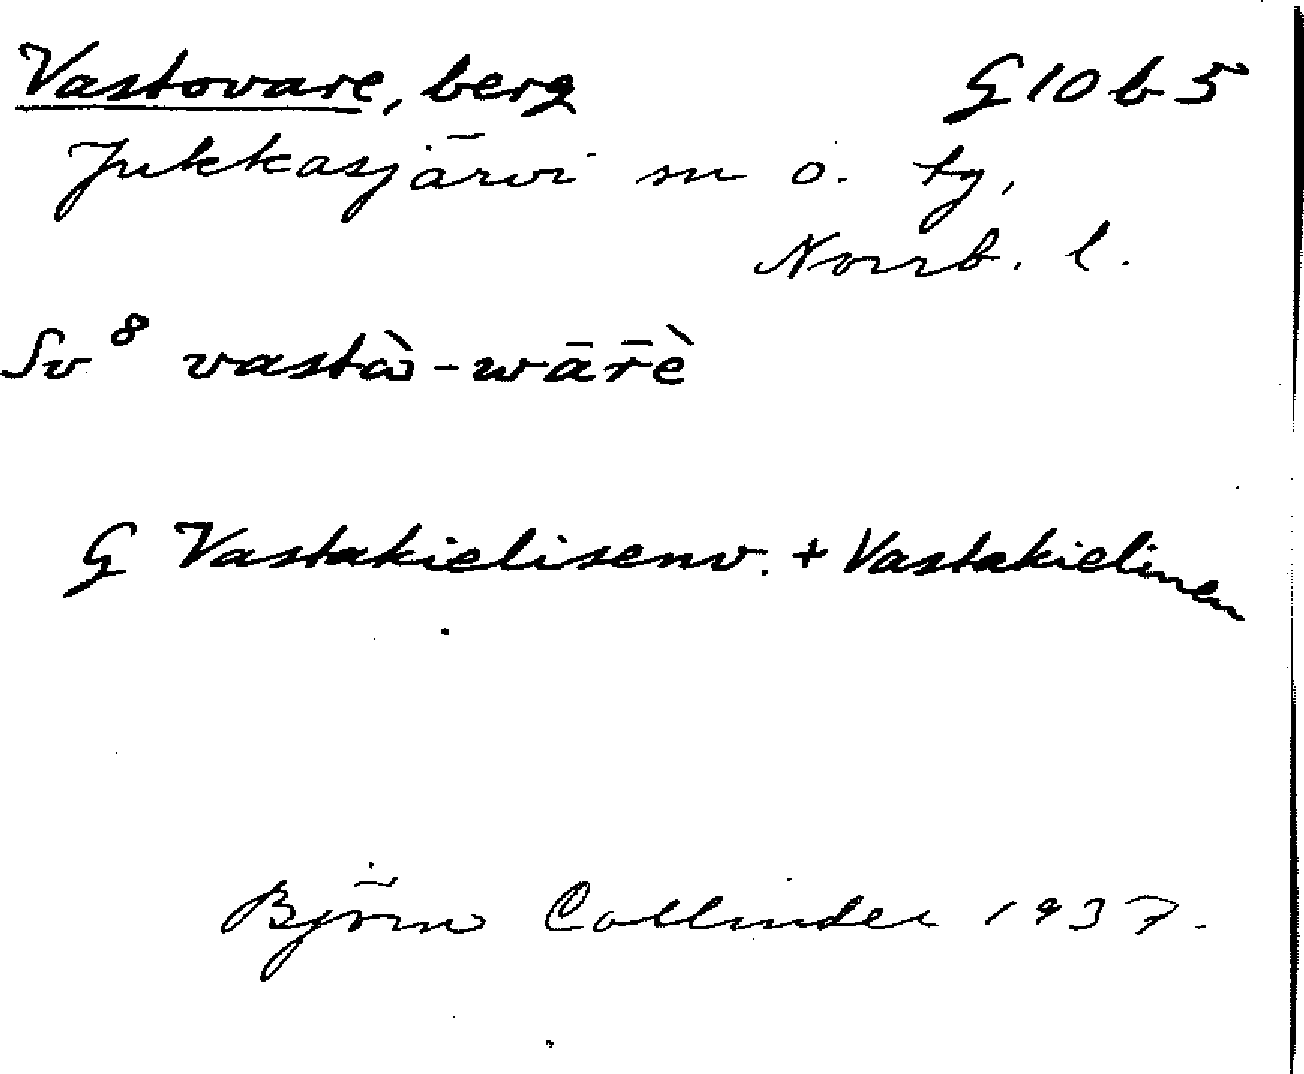 Vastovare, berg G 10 b 5
Jukkasjärvi sn o. tg,
Norrb. l.
Sv 8 vastὰ̀-wārè
G Vastakielisenv. + Vastakielinen
Björn Collinder 1937.